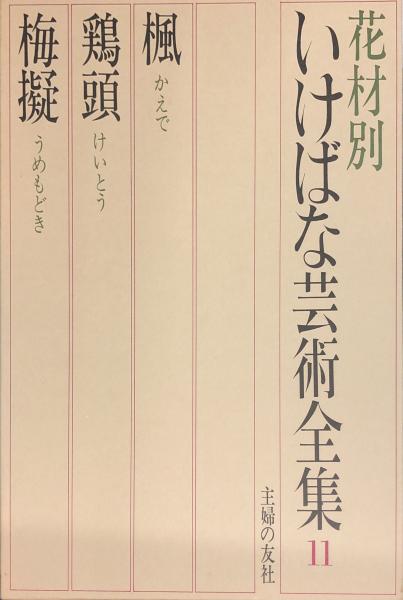 花材別
いけばな芸術全集11
主婦の友社
楓
かえで
鶏頭
けいとう
梅擬
うめもどき